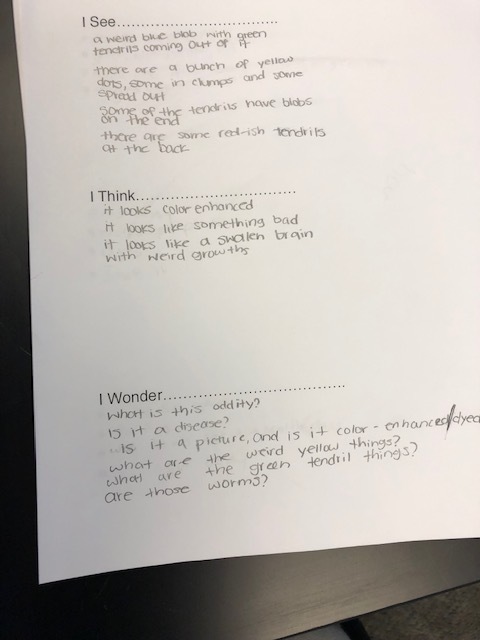 I See................................
a weird blue blob with green
tendrils coming out of it
there are a bunch of yellow
dots, some in clumps and some
spread out
some of the tendrils have blobs
on the end
there are some red-ish tendrils
at the back
I Think................................
it looks color enhanced
it looks like something bad
it looks like a swolen brain
with weird growths
I Wonder.....................................
What is this oddity?
is it a disease?
is it a picture, and is it color-enhanced/dyed
what are the weird yellow things?
what are the green tendril things?
are those worms?